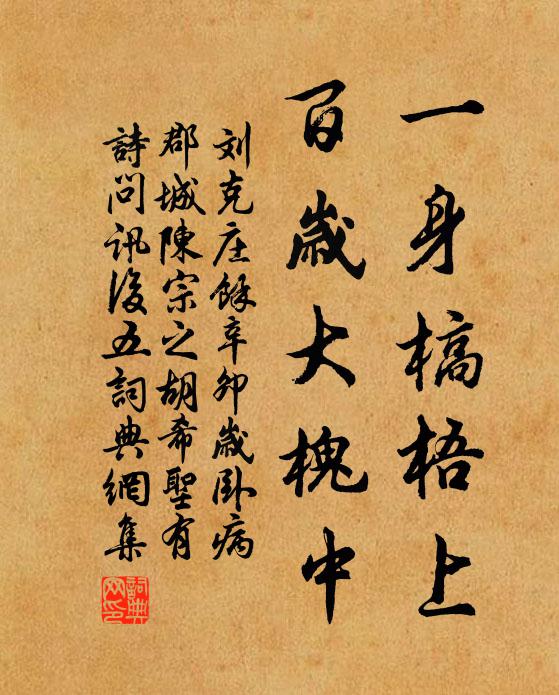 一身槁梧上
百歲大槐中
刘克庄餘辛卯歲臥病
郡城陳宗之胡希聖有
詩問訊後五詞典網集
詞典網印